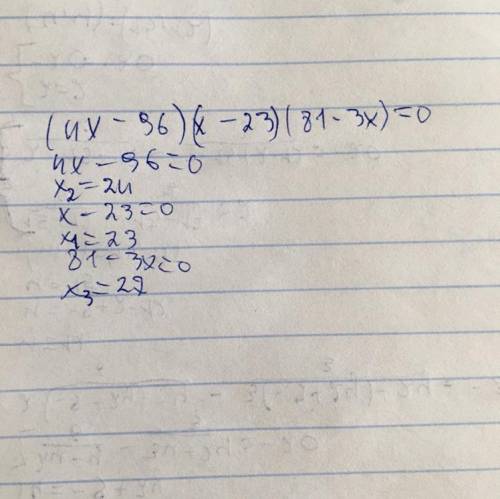 (4x - 96)(x - 23)(81 - 3x) = 0
4x - 96 = 0
x₂ = 24
x - 23 = 0
x₁ = 23
81 - 3x = 0
x₃ = 27